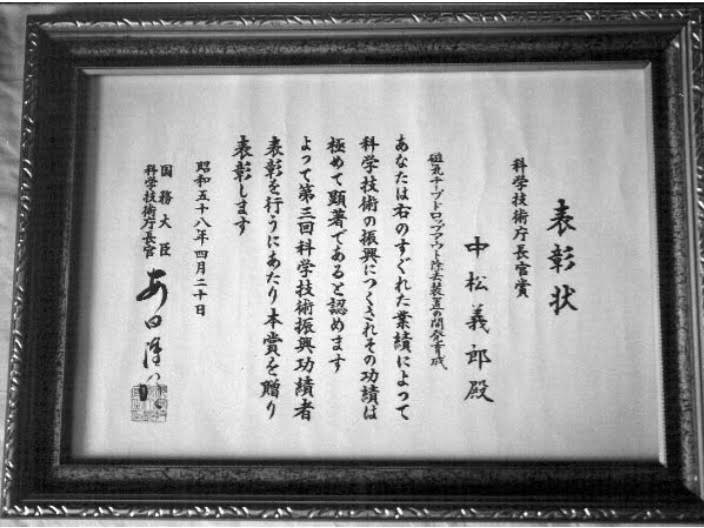 表彰状
科学技術庁長官賞
中松義郎殿
磁気テープドロップアウト除去装置の開発育成
あなたは右のすぐれた業績によって
科学技術の振興につくされその功績は
極めて顕著であると認めます
よって第三回科学技術振興功績者
表彰を行うにあたり本賞を贈り
表彰します
昭和五十八年四月二十日
国務大臣
科学技術庁長官